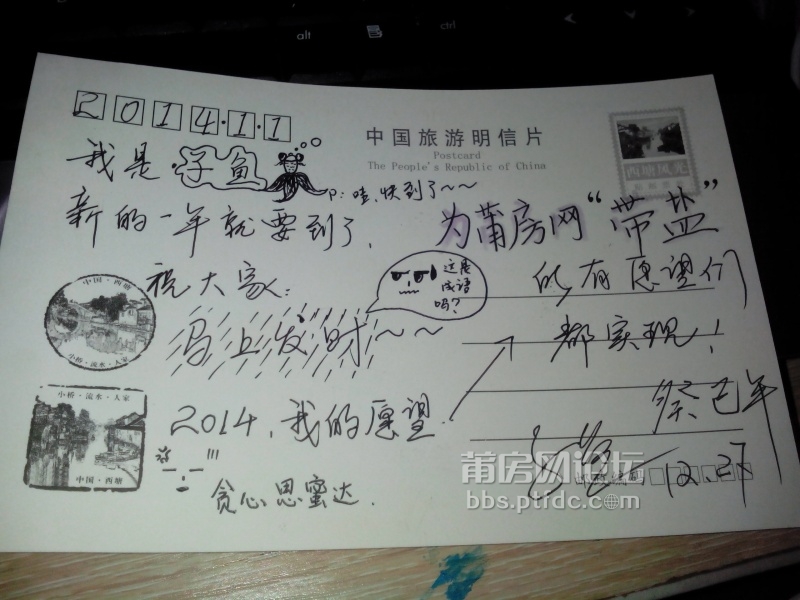 alt
ctrl
2014.1.1
中国旅游明信片
Postcard
The People's Republic of China
西塘风光
我是
鱼
P:哇,快到了~~
新的一年就要到了,
为莆房网“带盐”
祝大家:
这是
成语
吗?
所有愿望们
中国·西塘
小桥·流水·人家
马上发财~~
都实现!
小桥·流水·人家
中国·西塘
2014,我的愿望
癸巳年
12.27
贪心思蜜达.
莆房网论坛
bbs.ptfdc.com